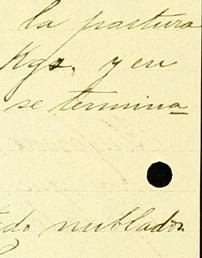 la pastura
Kgs. y en
se termina
do nublados.